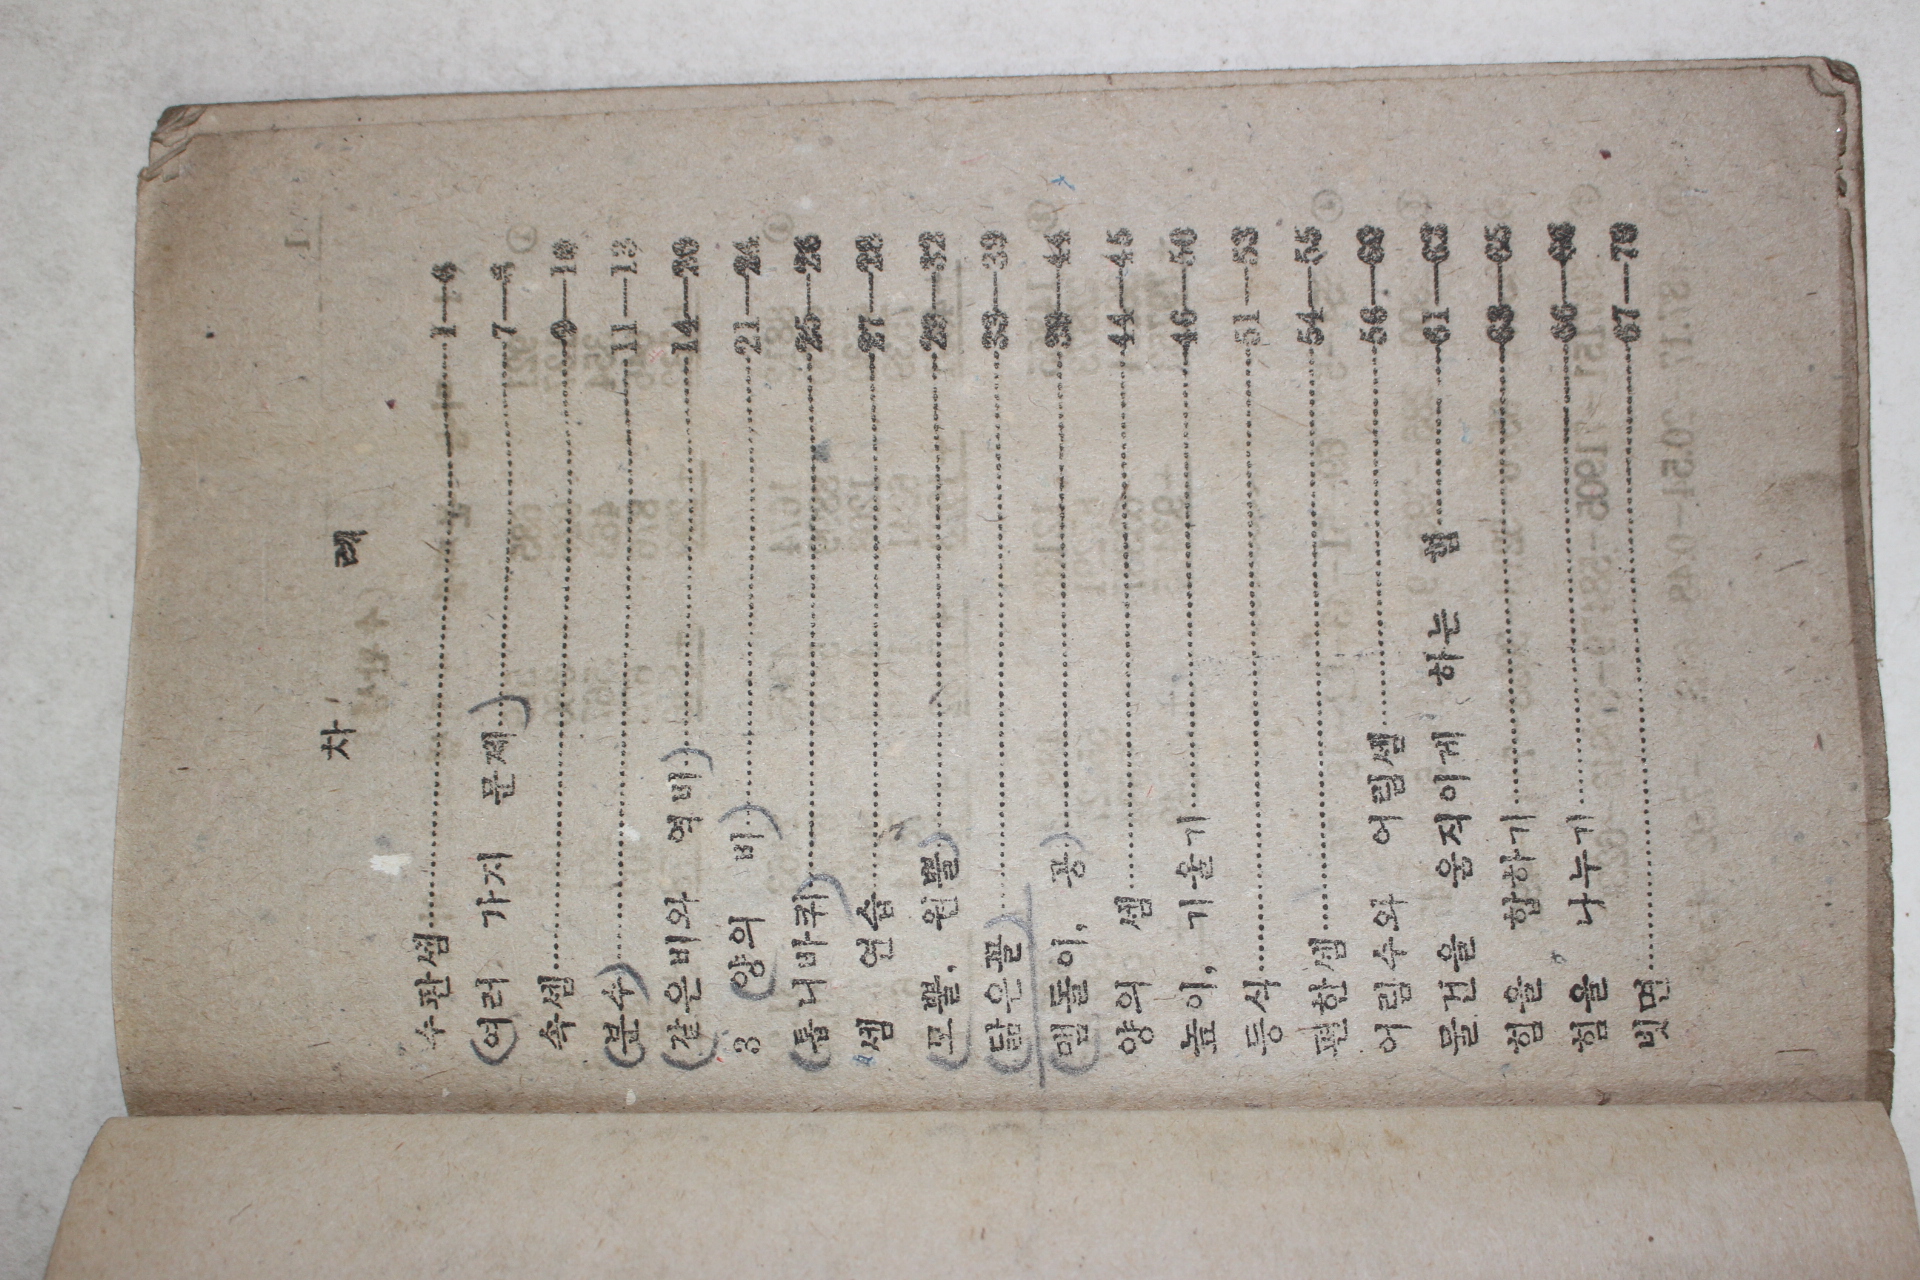 차 례
수판셈 1—6
여러 가지 문제 7—8
속셈 9—10
분수 11—13
같은비와 역비 14—20
3 양의 비 21—24
톱니바퀴 25—26
셈 연습 27—28
모뿔, 원뿔 29—32
닮은꼴 33—39
맴돌이, 공 39—44
양의 셈 44—45
높이, 기울기 46—50
등식 51—53
편한셈 54—55
어림수와 어림셈 56—60
물건을 움직이게 하는 힘 61—62
힘을 합하기 63—65
힘을 나누기 66—66
빗면 67—70